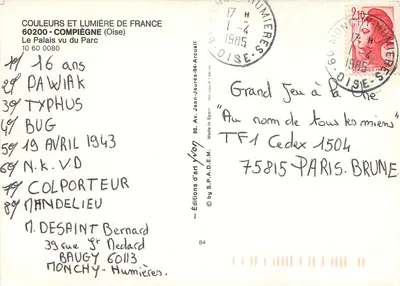 COULEURS ET LUMIÈRE DE FRANCE
60200 - COMPIÈGNE (Oise)
Le Palais vu du Parc
10 60 0080
1°/ 16 ans
2°/ PAWIAK
3°/ TYPHUS
4°/ BUG
5°/ 19 AVRIL 1943
6°/ N.K.VD
7°/ COLPORTEUR
8°/ MANDELIEU
M. DESAINT Bernard
39 rue St Medard
BAUGY 60113
MONCHY-Humières.
- Éditions d'art yvon
30, Av. Jean-Jaurès-94-Arcueil
Made in
© by S.P.A.D.E.M.
84
MONCHY-HUMIERES
17 H
1-4
1985
OISE
2,10
17 H
1-4
1985
OISE
Grand Jeu à la Cie
"Au nom de tous les miens"
TF1 Cedex 1504
75815 PARIS. BRUNE